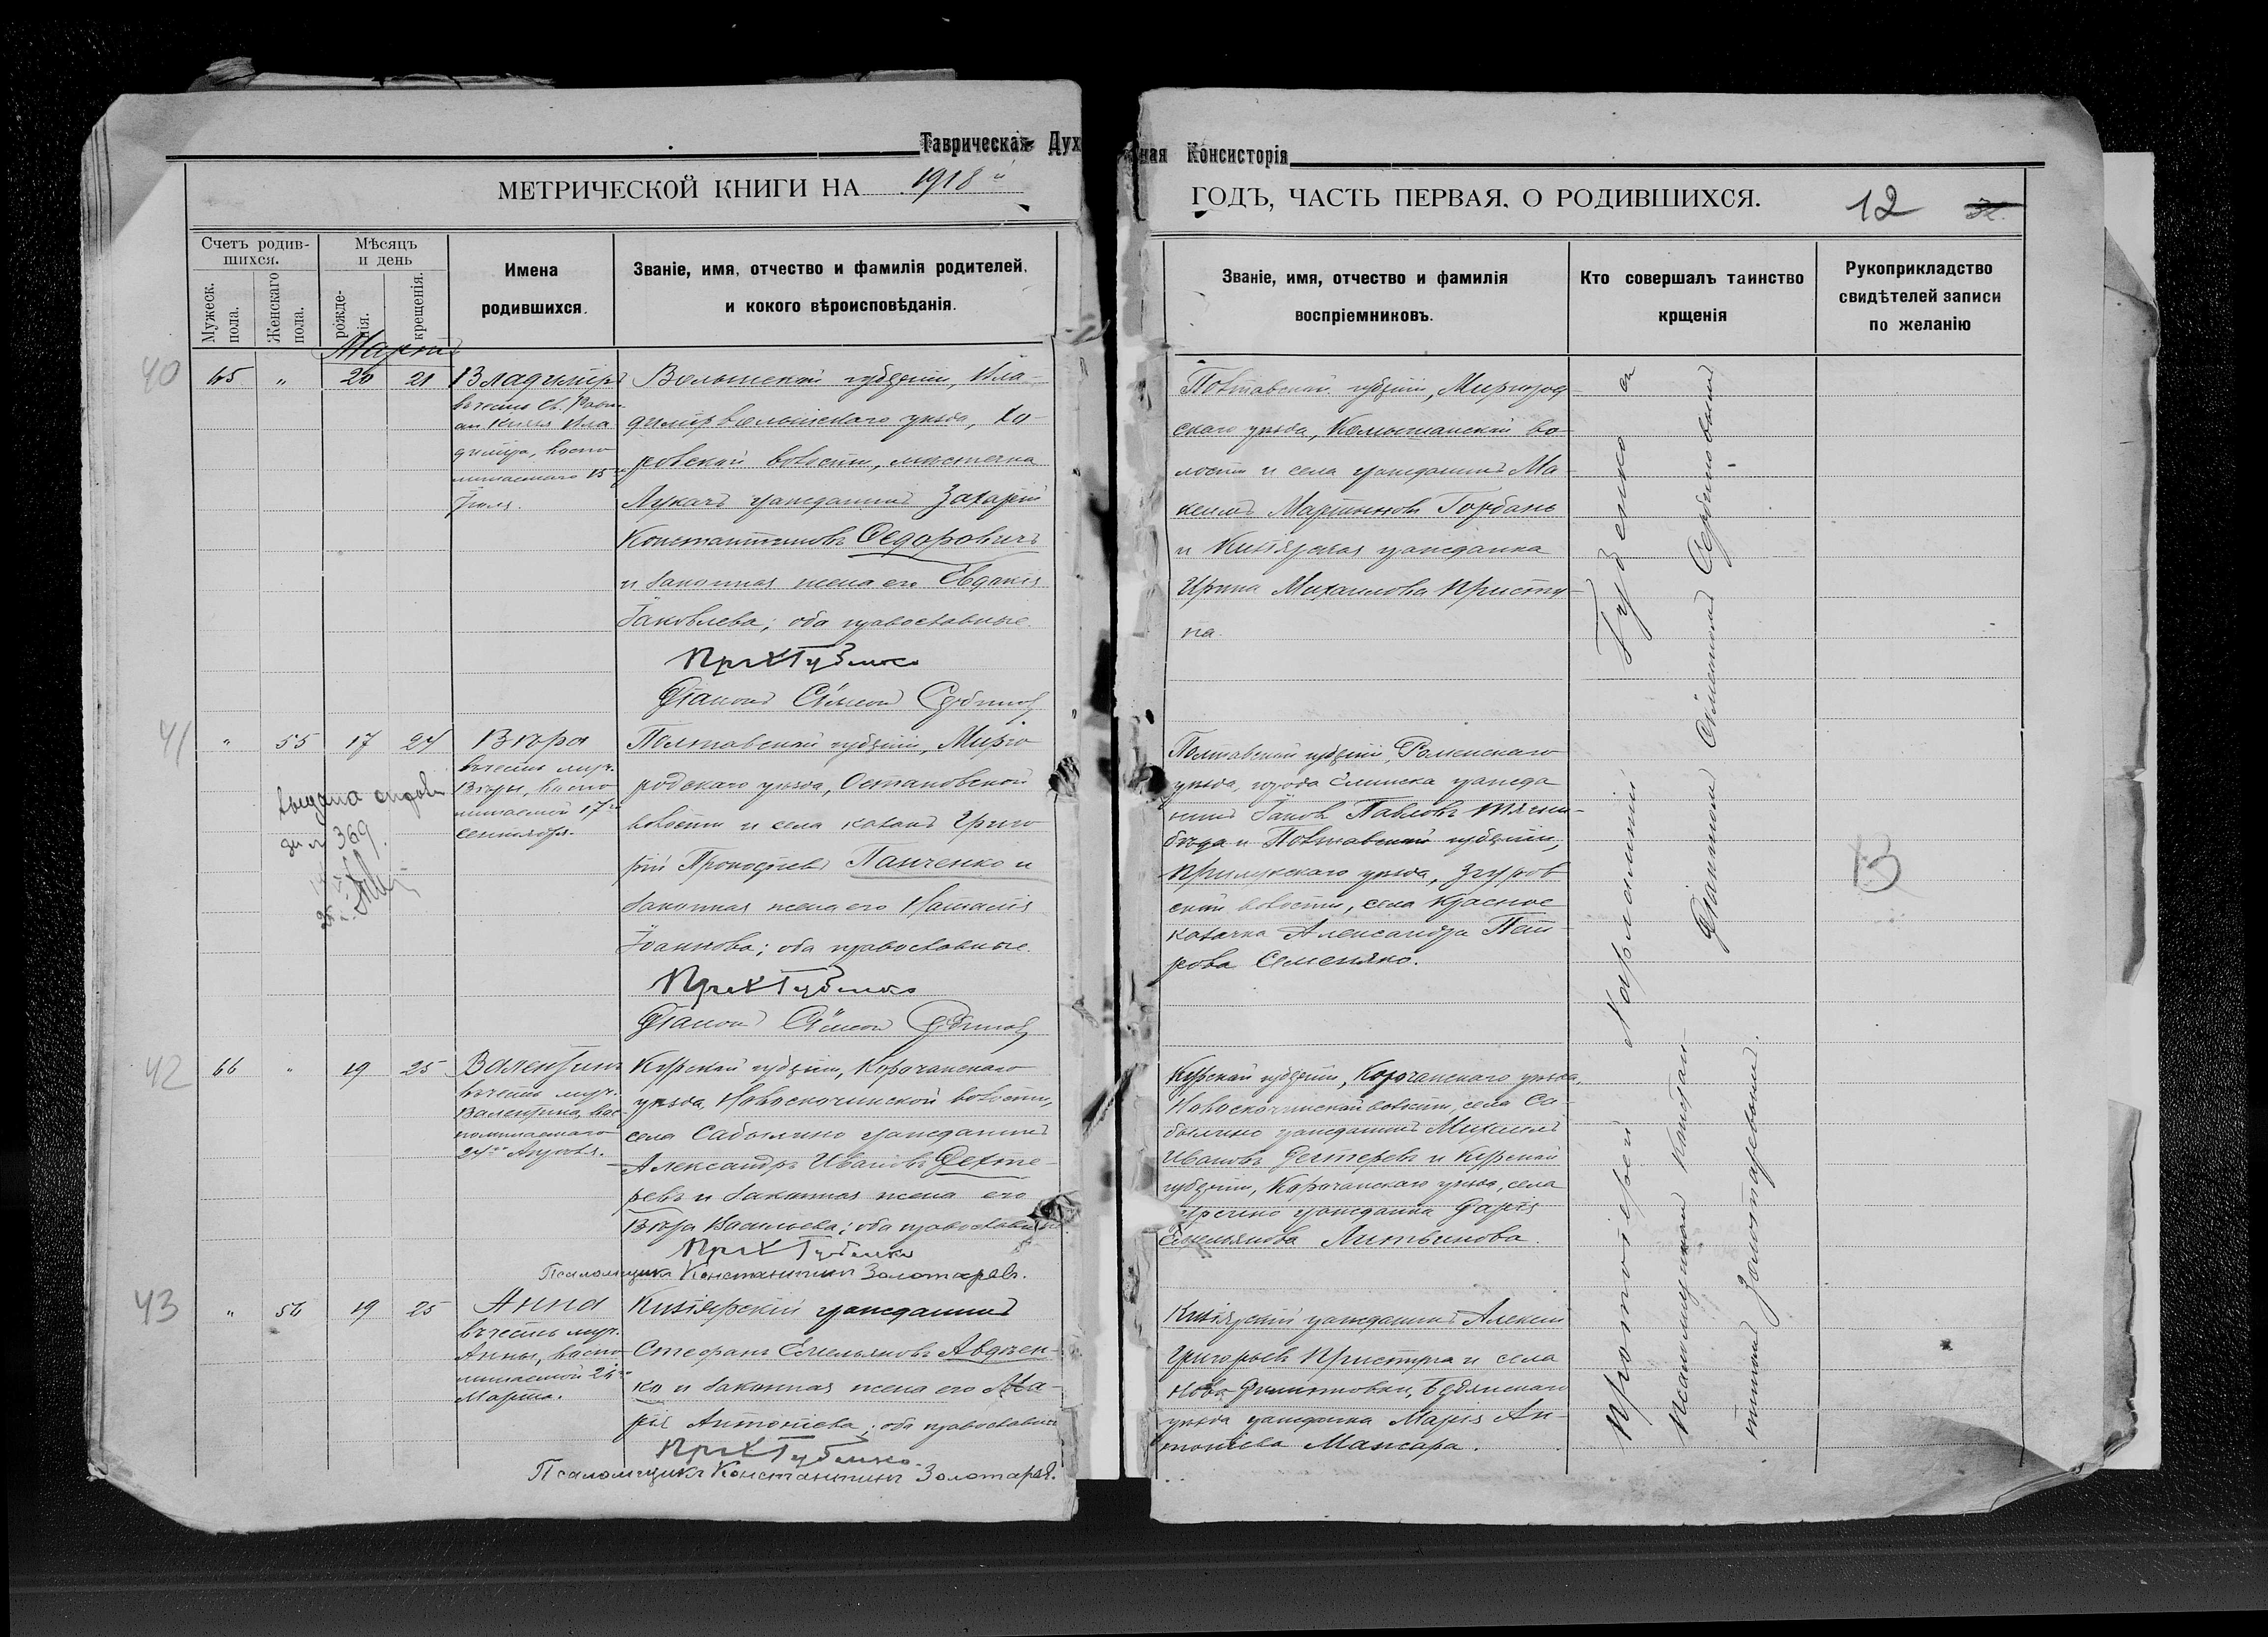 Таврическая Духовная Консисторія
МЕТРИЧЕСКОЙ КНИГИ НА 1918 й
ГОДЪ, ЧАСТЬ ПЕРВАЯ, О РОДИВШИХСЯ.
12
Счетъ родив-
шихся.
Мужеск.
пола.
Женскаго
пола.
Мѣсяцъ
и день
рожде-
нія.
крещенія.
Имена
родившихся.
Званіе, имя, отчество и фамилія родителей,
и кокого вѣроисповѣданія.
Званіе, имя, отчество и фамилія
воспріемниковъ.
Кто совершалъ таинство
крщенія
Рукоприкладство
свидѣтелей записи
по желанію
Мартъ
40
65 " 20 21
Владиміръ
въ честь Св. Равн.
ап. Князя Вла
диміра, воспо
минаемаго 15го
Іюля.
Волынской губерніи, Вла-
диміръ волынскаго уѣзда, Хо-
ровской волости, мѣстечка
гражданинъ Захарій
Константиновъ Ѳедоровичъ
и законная жена его Евдокія
Іаковлева; оба православные.
Прот. Губенко
Діаконъ Сѵмеонъ
Полтавской губерніи, Миргород-
скаго уѣзда, Комышанской во-
лости и села гражданинъ Ма-
ксимъ Мартыновъ Горбань
и Кизіярская гражданка
Ирина Михаилова Присту-
па.
41
" 55 17 24
Вѣра
въ честь муч.
Вѣры, воспо
минаемой 17го
сентября.
выдана
за № 369
Полтавской губерніи, Мирго
родскаго уѣзда, Остаповской
волости и села козакъ Григо
рій Прокофіевъ Панченко и
законная жена его Наталія
Іоаннова; оба православные.
Прот. Губенко
Діаконъ Сѵмеонъ
Полтавской губерніи, Роменскаго
уѣзда, города Глинска гражда
нинъ Іаковъ Павловъ Тягни-
бѣда и Полтавской губерніи,
Прилукскаго уѣзда, Згуров
ской волости, села Красное
козачка Александра Пет-
рова Семеняко.
В
42
66 " 19 25
Валентинъ
въ честь муч.
Валентина, вос-
поминаемаго
24го Апрѣля.
Курской губерніи, Корочанскаго
уѣзда, Новослочинской волости,
села Сабылино гражданинъ
Александръ Ивановъ Дехте-
ревъ и законная жена его
Вѣра Васильева; оба православные.
Прот. Губенко
Псаломщикъ Константинъ Золотаревъ.
Курской губерніи, Корочанскаго уѣзда,
Новослочинской волости, села Са-
былино гражданинъ Михаилъ
Ивановъ Дегтеревъ и Курской
губерніи, Корочанскаго уѣзда, села
гражданка Дарія
Емельянова Литвинова.
43
" 56 19 25
Анна
въ честь муч.
Анны, воспо
минаемой 24го
Марта.
Кизіярскій гражданинъ
Стефанъ Емельяновъ Авдѣен-
ко и законная жена его Ма-
рія Антоніева; оба православные
Прот. Губенко
Псаломщикъ Константинъ Золотаревъ.
Кизіярскій гражданинъ Алексій
Григорьевъ Приступа и села
Ново Бердянскаго
уѣзда гражданка Марія Ан-
тоніева Мансара.
Протоіерей Харлампій Губенко съ
Діакономъ Сѵмеономъ
Псаломщикомъ Констан
тиномъ Золотаревымъ.